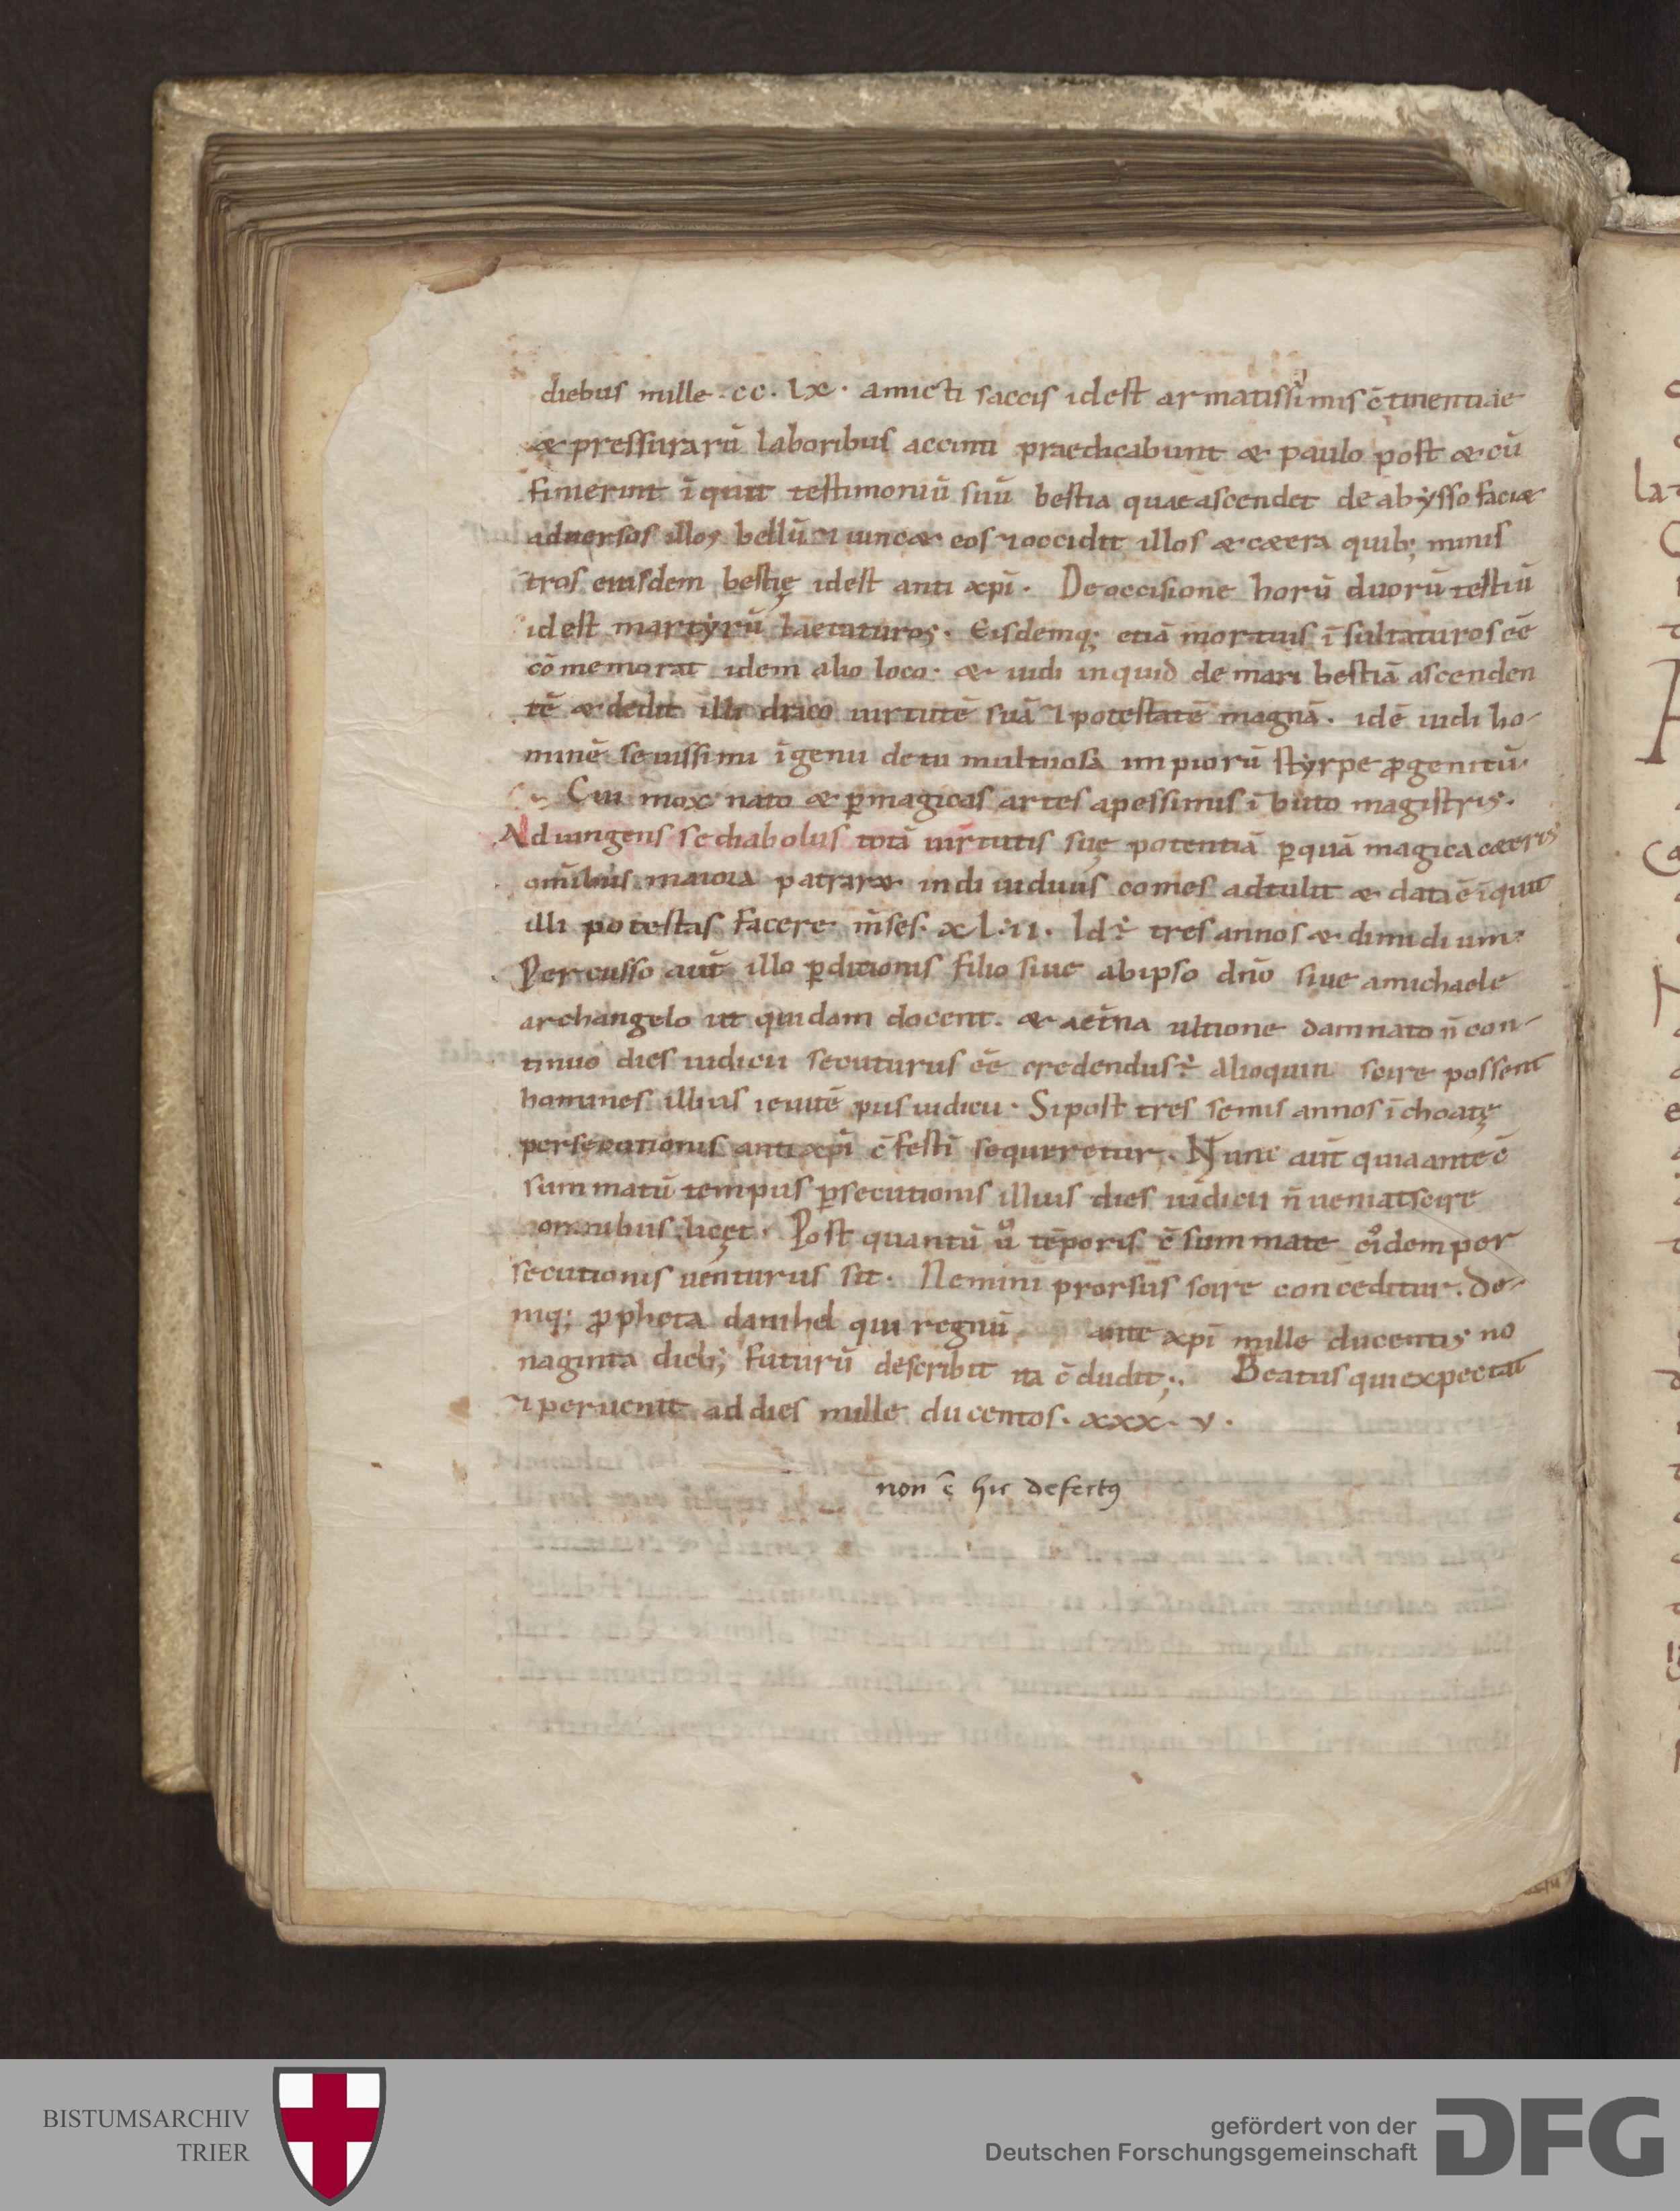 diebus mille · cc · lx · amicti saccis id est armatissimis c̄tinentiae
& pressurarū laboribus accinti praedicabunt & paulo post & cū
finierint īquit testimoniū suū bestia quae ascendet de abẏsso faci&
adversos illos bellū ⁊ uinc& eos ⁊ occidit illos & c&era quib; minis
tros eiusdem bestię id est anti xp̄i · De occisione horū duorū testiū
id est martẏrū laetaturos · Eisdemq; etiā mortuis īsultaturos eē
cōmemorat idem alio loco · & uidi inquid de mari bestiā ascenden
tē & dedit illi draco uirtutē suā ⁊ potestatē magnā · idē uidi ho-
minē seuissimi īgenii de tumultuosa impiorū stẏrpe ꝓgenitū·
Cui mox nato & ꝑ magicas artes a pessimis ībuto magistris ·
Adiungens se diabolus totā uirtutis suę potentiā ꝑ quā magica c&eris
om̄ibus maiora patrar& indiuiduus comes adtulit & data ē īquit
illi potestas facere m̄ses · xl:ii · Id ÷ tres annos & dimidium·
Percusso aut̄ illo ꝑditionis filio siue ab ipso dn̄o siue a michaele
archangelo ut quidam docent · & aet̄na ultione damnato n̄ con-
tinuo dies iudicii secuturus eē credendus ÷ Alioquin scire possent
homines illius ieuitē pus iudicii · Si post tres semis annos īchoatę
persecutionis antixp̄i c̄festī sequeretur · Nunc aut̄ quia ante c̄
summatū tempus ꝑsecutionis illius dies iudicii n̄ ueniat scire
omnibus licęt · Post quantū ů tēporis c̄summate eidem per
secutionis uenturus sit · Nemini prorsus scire conceditur. De-
niq; ꝓpheta danihel qui regnū ante xp̄i mille ducentis no
naginta dieb; futurū describit ita c̄dudit;· Beatus qui expectat
⁊ peruenit ad dies mille ducentos · xxx · v ·
non ē hic defectꝰ
BISTUMSARCHIV
TRIER
gefördert von der
Deutschen Forschungsgemeinschaft
DFG